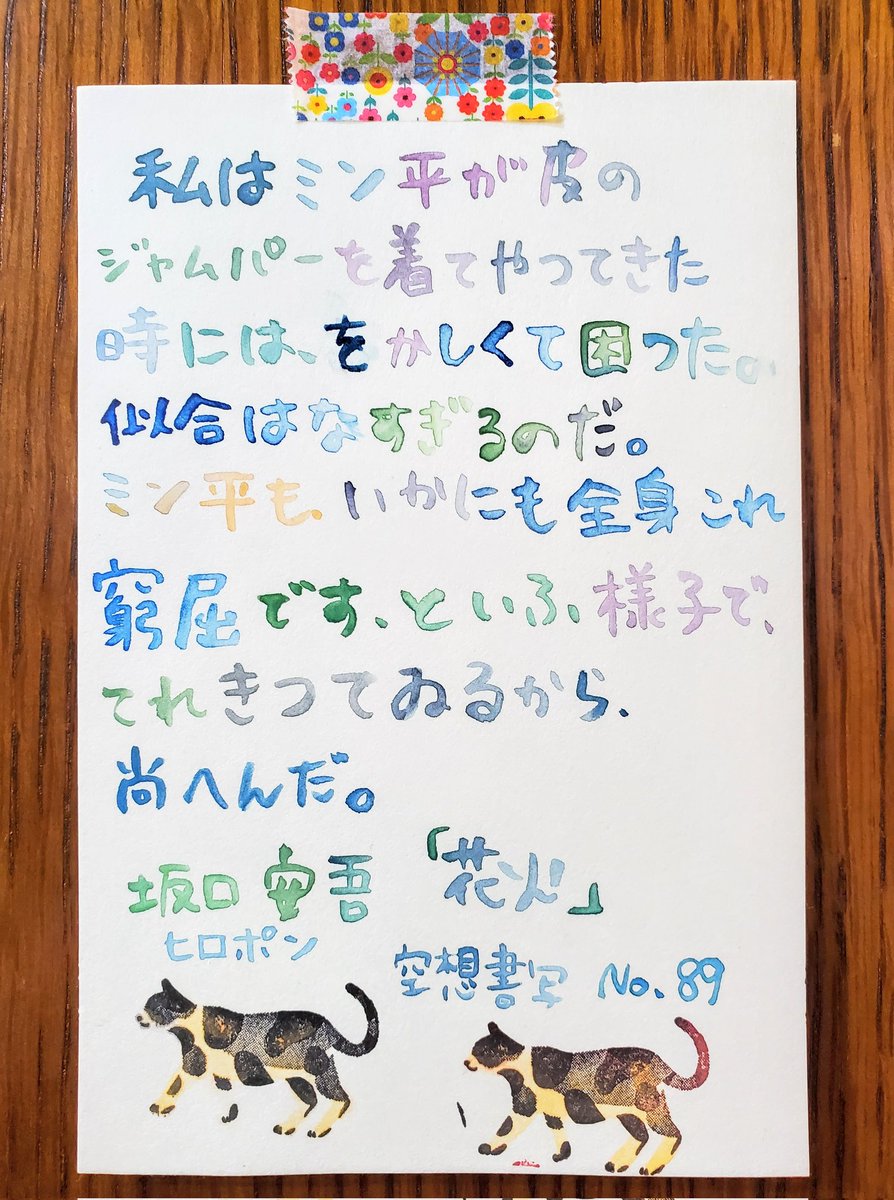 私はミン平が皮の
ジャムパーを着てやつてきた
時には、をかしくて困つた。
似合はなすぎるのだ。
ミン平も、いかにも全身これ
窮屈です、といふ様子で、
てれきつてゐるから、
尚へんだ。
坂口安吾「花火」
ヒロポン
空想書写 No.89